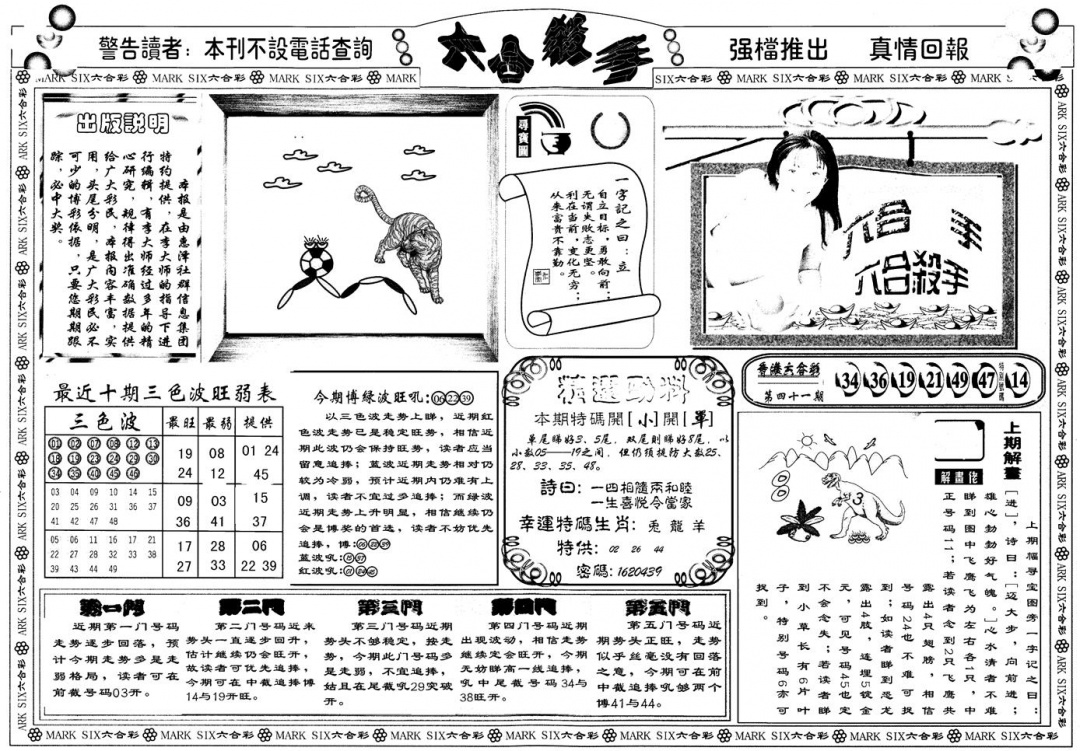 警告讀者：本刊不設電話查詢
六合殺手
强檔推出 真情回報
MARK SIX六合彩 MARK SIX六合彩 MARK SIX六合彩 MARK SIX六合彩 MARK
SIX六合彩 MARK SIX六合彩 MARK SIX六合彩 MARK SIX六合彩
出版説明
本报是由惠泽社群信息集团
特约提供，在李大师的指导下进
行编辑，有李大师经过多年的精
心研究，规律得出准确数据提供
给广大彩民，本报内容丰富，实
用，头尾分明，是广大彩民必不
可少的博彩依据，只要您期期跟
踪，必中大奖。
尋寶圖
一字記之曰：立
自立目标，勇敢向前；
无谓失敗志更坚。
利在当前，变化无穷；
从来富贵不靠勤。
六合 手
六合殺手
香港六合彩
第四十一期
34 36 19 21 49 47
特别號碼
14
最近十期三色波旺弱表
三色波 最旺 最弱 提供
01 02 07 08 12 13
18 19 23 24 29 30
34 35 40 45 46
19 08 01 24
24 12 45
03 04 09 10 14 15
20 25 26 31 36 37
41 42 47 48
09 03 15
36 41 37
05 06 11 16 17 21
22 27 28 32 33 38
39 43 44 49
17 28 06
27 33 22 39
今期博緑波旺吼：06 22 39
以三色波走势上睇，近期红
色波走势已是稳定旺势，相信近
期此波仍会保持旺势，读者应当
留意追捧；蓝波近期走势相对仍
较为冷弱，预计近期内仍难有上
调，读者不宜过多追捧；而绿波
近期走势上升明显，相信继续仍
会是博奖的首选，读者不妨优先
追捧，博：
蓝波吼：
红波吼：
精選勁料
本期特碼開［小］開［單］
单尾睇好3、5尾，双尾則睇好8尾，以
小数05——19之间，但仍须提防大数25、
28、33、35、48。
詩曰：一四相隨示和睦
一生喜悦令當家
幸運特碼生肖：兎 龍 羊
特供：02 26 44
密碼：1620439
上期解畫
解畫佬
上期幅寻宝图秀一字记之曰：
［进］，诗曰：［迈大步，向前进；
雄心勃勃好气魄。］心水清者不难
睇到图中飞鹰为左右各1只，中
正号码11；若读者念到2只飞鹰共
露出4只翅膀，相信
号码24也不难可找
到；如读者睇到恐龙
露出4肢，连埋5锭金
元，可见号码45也定
不会念失；若读者睇
到小草长有6片叶
子，特别号码6亦可
找到。
第一門
近期第一门号码
走势逐步回落，预
计今期走势多是走
弱格局，读者可在
前截号码03开。
第二門
第二门号码近来
势头一直逐步回升，
估计继续仍会旺开，
故读者可优先追捧，
今期可在中截追捧博
14与19开旺。
第三門
第三门号码近期
势头不够稳定，按走
势，今期此门号码多
是走弱，不宜追捧，
姑且在尾截吼29突破
开。
第四門
第四门号码近期
出现波动，相信走势
继续定会旺开，今期
无妨睇高一线追捧，
吼中尾截号码34与
38旺开。
第五門
第五门号码近
期势头正旺，走势
似乎丝毫没有回落
之意，今期可在前
中截追捧吼够两个
博41与44。
MARK SIX六合彩 MARK SIX六合彩 MARK SIX六合彩 MARK SIX六合彩 MARK SIX六合彩 MARK SIX六合彩 MARK SIX六合彩 MARK SIX六合彩 MARK SIX六合彩